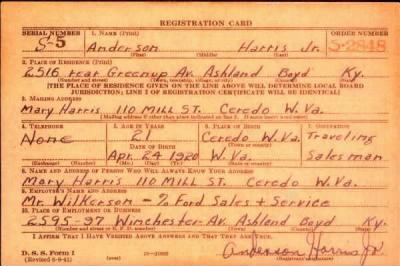 REGISTRATION CARD
SERIAL NUMBER 1. NAME (Print) ORDER NUMBER
S-5 Anderson Harris Jr. S-2848
(First) (Middle) (Last)
2. PLACE OF RESIDENCE (Print)
2516 rear Greenup Av. Ashland Boyd Ky.
(Number and street) (Town, township, village, or city) (County) (State)
[THE PLACE OF RESIDENCE GIVEN ON THE LINE ABOVE WILL DETERMINE LOCAL BOARD
JURISDICTION; LINE 2 OF REGISTRATION CERTIFICATE WILL BE IDENTICAL]
3. MAILING ADDRESS
Mary Harris 110 MILL ST. Ceredo W. Va.
[Mailing address if other than place indicated on line 2. If same insert word same]
4. TELEPHONE 5. AGE IN YEARS 6. PLACE OF BIRTH 7. OCCUPATION
None 21 Ceredo W. Va. Traveling
DATE OF BIRTH (Town or county)
Apr. 24 1920 W. Va. Salesman
(Exchange) (Number) (Mo.) (Day) (Yr.) (State or country)
8. NAME AND ADDRESS OF PERSON WHO WILL ALWAYS KNOW YOUR ADDRESS
Mary Harris 110 MILL ST. Ceredo W. Va.
9. EMPLOYER'S NAME AND ADDRESS
Mr. Wilkerson - % Ford Sales + Service
10. PLACE OF EMPLOYMENT OR BUSINESS
2595-97 Winchester Av. Ashland Boyd Ky.
(Number and street or R. F. D. number) (Town) (County) (State)
I AFFIRM THAT I HAVE VERIFIED ABOVE ANSWERS AND THAT THEY ARE TRUE.
D. S. S. Form 1 Anderson Harris Jr
(Revised 6-9-41) (over)